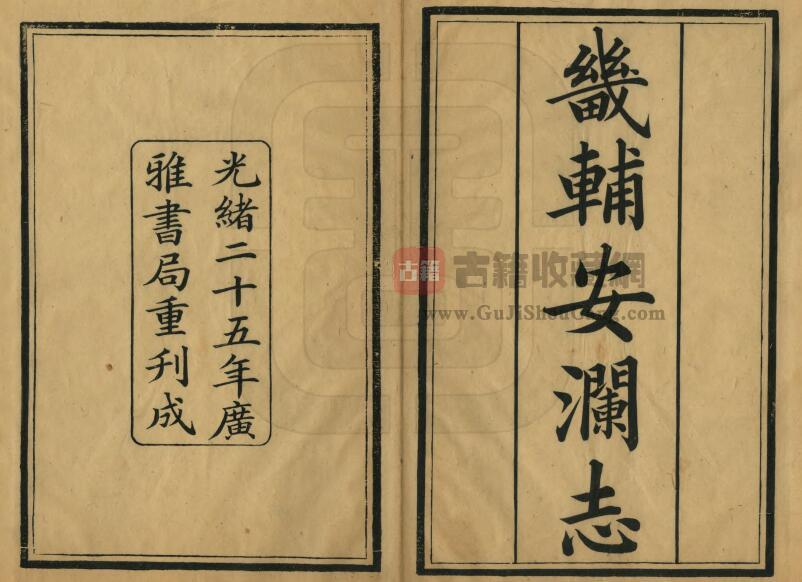 畿輔安瀾志
光緒二十五年廣
雅書局重刋成
古籍
古籍收藏網
www.GuJiShouCang.com